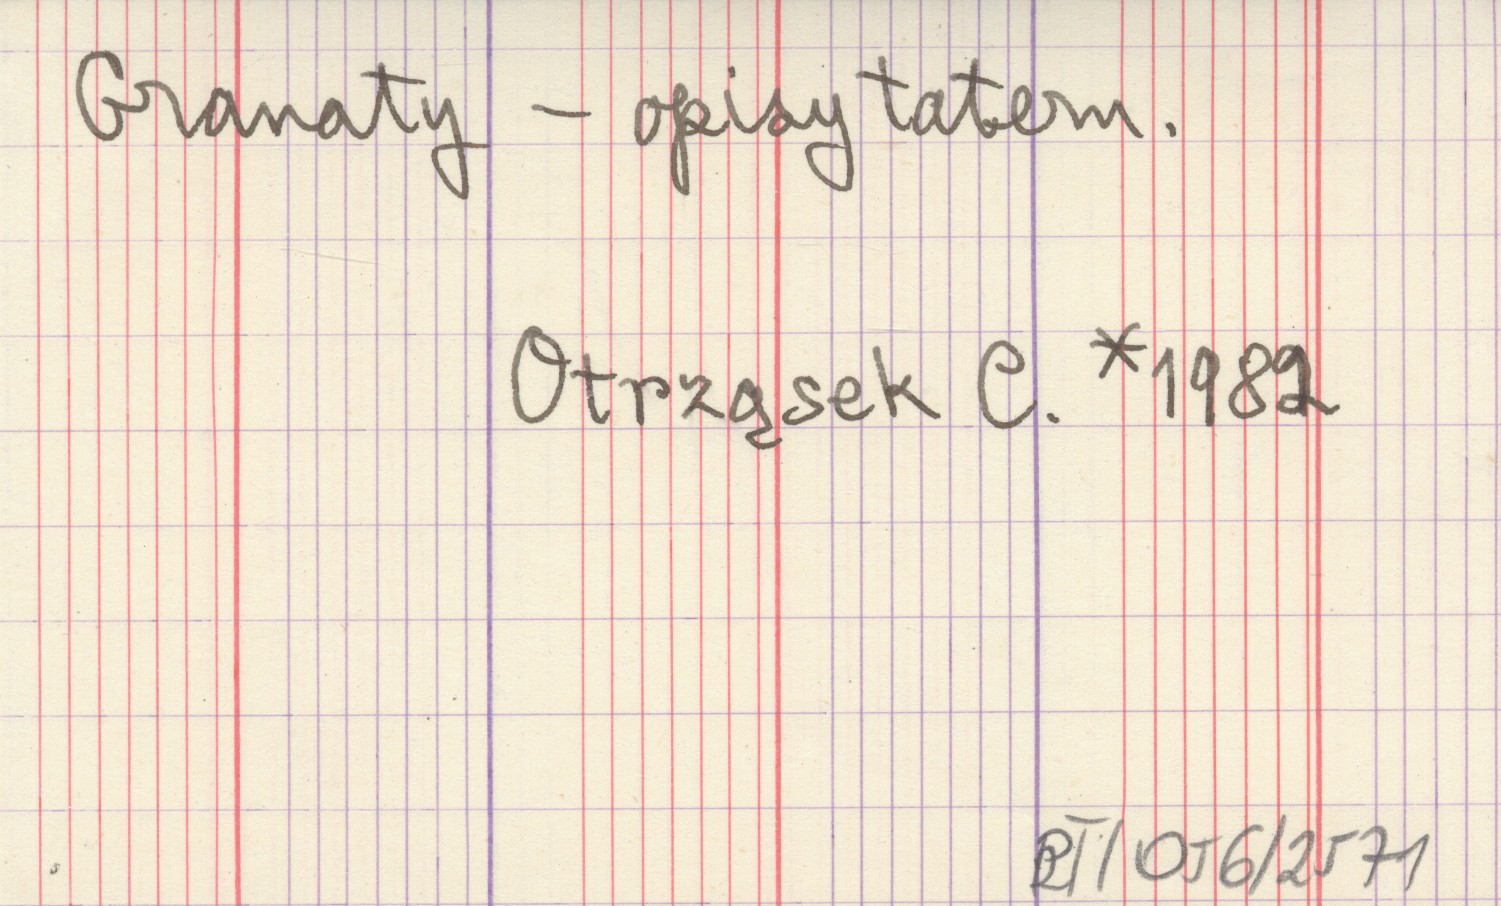 Granaty – opisy tatem.
Otrząsek C. *1982
PT/056/2571